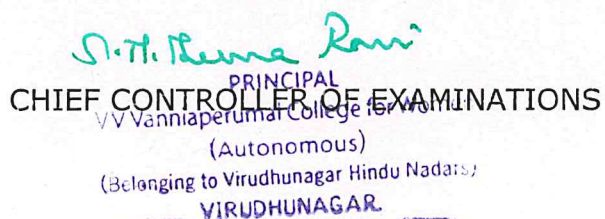 S.M. Meena Rani
PRINCIPAL
CHIEF CONTROLLER OF EXAMINATIONS
V V Vanniaperumal College for Women
(Autonomous)
(Belonging to Virudhunagar Hindu Nadars)
VIRUDHUNAGAR